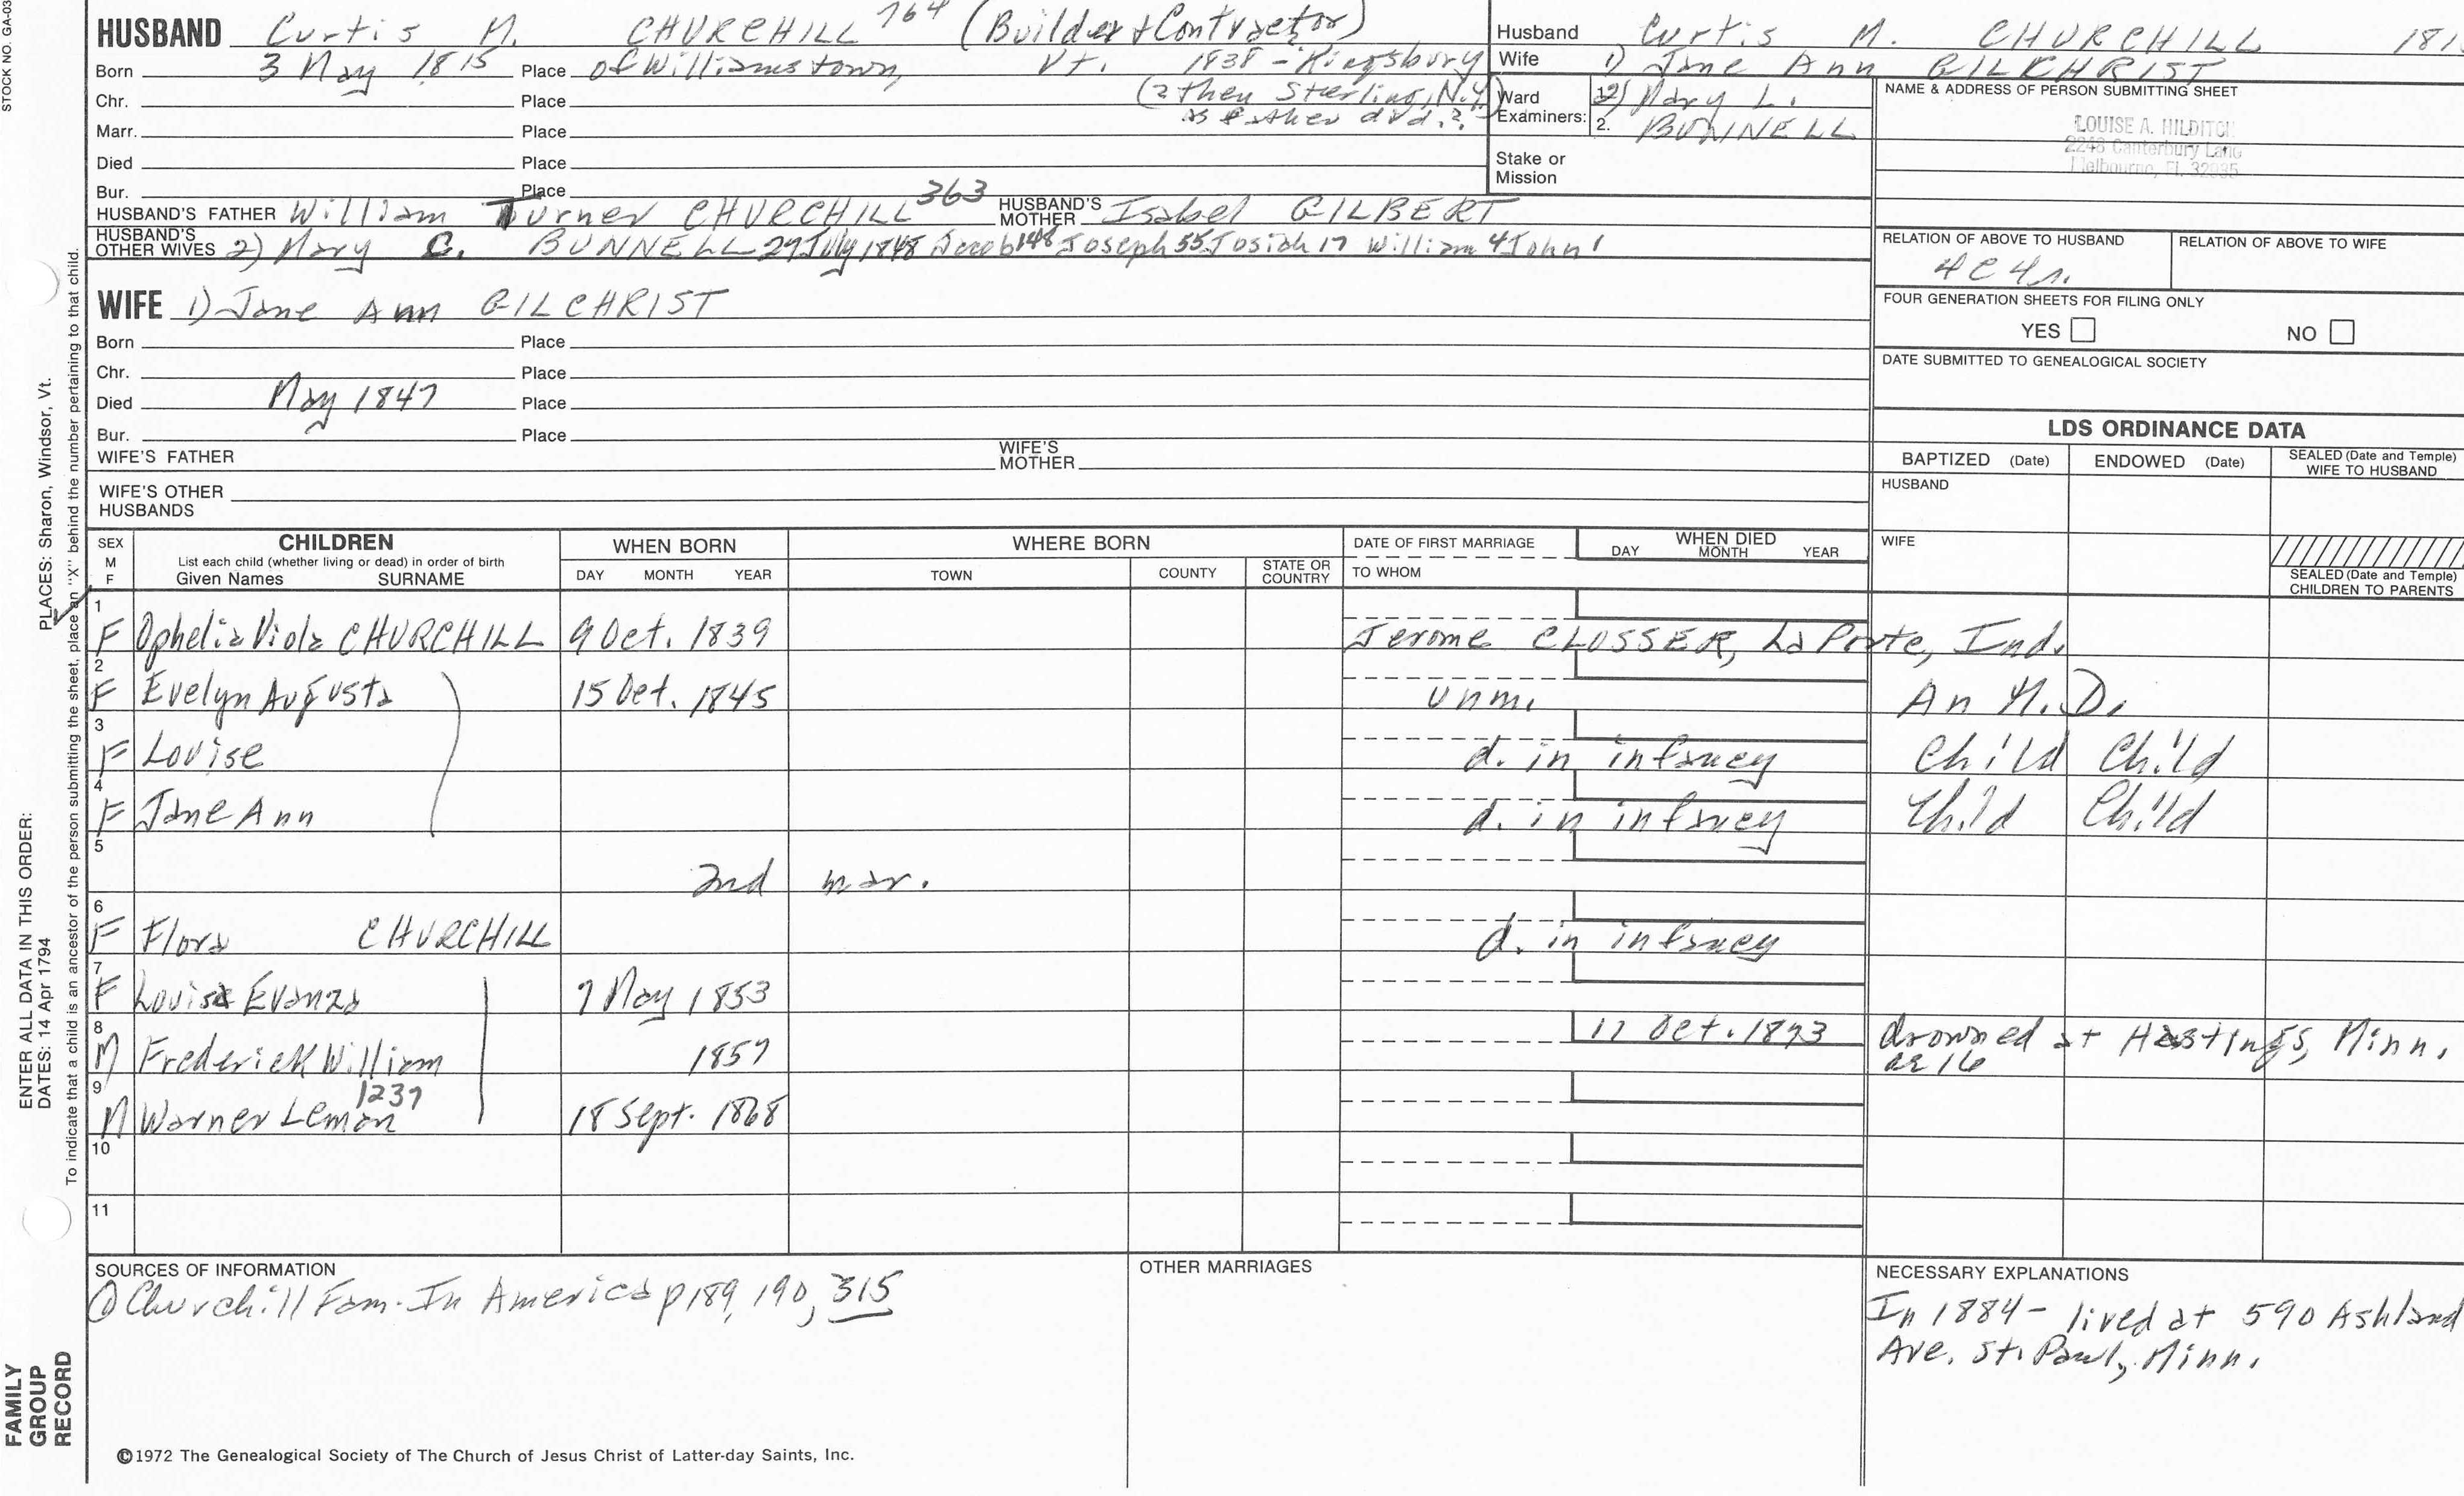 STOCK NO. GA-03
HUSBAND Curtis M. CHURCHILL 764 (Builder & Contractor)
Born 3 May 1815 Place of Williamstown, Vt. 1838 - Kingsbury
Chr. Place (2 then Sterling, N.Y.)
Marr. Place as father did.?
Died Place
Bur. Place
HUSBAND'S FATHER William Turner CHURCHILL 363 HUSBAND'S MOTHER Isabel GILBERT
HUSBAND'S OTHER WIVES 2) Mary C. BUNNELL 29 July 1848 Jacob 148 Joseph 55 Josiah 17 William 4 John 1
WIFE 1) Jane Ann GILCHRIST
Born Place
Chr. Place
Died May 1847 Place
Bur. Place
WIFE'S FATHER WIFE'S MOTHER
WIFE'S OTHER HUSBANDS
Husband Curtis M. CHURCHILL 181
Wife 1) Jane Ann GILCHRIST
Ward Examiners: 2) Mary L.
2. BUNNELL
Stake or Mission
NAME & ADDRESS OF PERSON SUBMITTING SHEET
LOUISE A. HILDITCH
2246 Canterbury Lane
Melbourne, Fl. 32935
RELATION OF ABOVE TO HUSBAND RELATION OF ABOVE TO WIFE
4C4r.
FOUR GENERATION SHEETS FOR FILING ONLY
YES NO
DATE SUBMITTED TO GENEALOGICAL SOCIETY
LDS ORDINANCE DATA
BAPTIZED (Date) ENDOWED (Date) SEALED (Date and Temple) WIFE TO HUSBAND
HUSBAND
WIFE
SEALED (Date and Temple) CHILDREN TO PARENTS
SEX M F
CHILDREN
List each child (whether living or dead) in order of birth
Given Names SURNAME
WHEN BORN
DAY MONTH YEAR
WHERE BORN
TOWN COUNTY STATE OR COUNTRY
DATE OF FIRST MARRIAGE
TO WHOM
WHEN DIED
DAY MONTH YEAR
1 F Ophelia Viola CHURCHILL 9 Oct. 1839 Jerome CLOSSER, La Porte, Ind.
2 F Evelyn Augusta 15 Oct. 1845 unm. An M.D.
3 F Louise d. in infancy Child Child
4 F Jane Ann d. in infancy Child Child
5 2nd mar.
6 F Flora CHURCHILL d. in infancy
7 F Louisa Evanza 7 May 1853
8 M Frederick William 1857 17 Oct. 1873 drowned at Hastings, Minn. ae 16
9 M Warner Leman 1237 18 Sept. 1868
10
11
SOURCES OF INFORMATION
① Churchill Fam. In America p 189, 190, 315
OTHER MARRIAGES
NECESSARY EXPLANATIONS
In 1884 - lived at 590 Ashland
Ave. St. Paul, Minn.
©1972 The Genealogical Society of The Church of Jesus Christ of Latter-day Saints, Inc.
FAMILY GROUP RECORD
ENTER ALL DATA IN THIS ORDER:
DATES: 14 Apr 1794
PLACES: Sharon, Windsor, Vt.
To indicate that a child is an ancestor of the person submitting the sheet, place an "X" behind the number pertaining to that child.